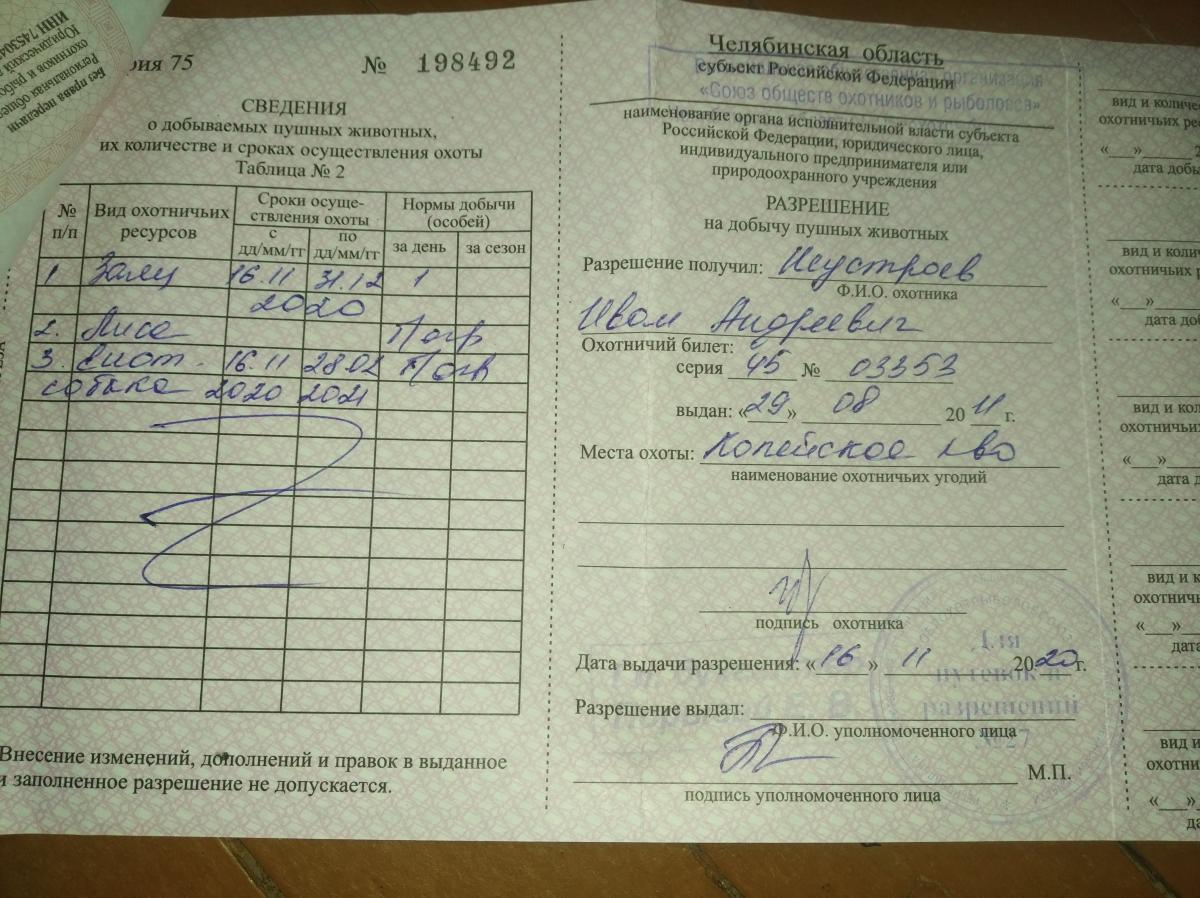 Без права передачи
ИНН 74530
рия 75 № 198492
СВЕДЕНИЯ
о добываемых пушных животных,
их количестве и сроках осуществления охоты
Таблица № 2
№ п/п Вид охотничьих ресурсов Сроки осуще-ствления охоты Нормы добычи (особей)
с дд/мм/гг по дд/мм/гг за день за сезон
1 Заяц 16.11 31.12 1
2020
2. Лиса
3. 16.11 28.02
собака 2020 2021
Внесение изменений, дополнений и правок в выданное
и заполненное разрешение не допускается.
Челябинская область
субъект Российской Федерации
организация
«Союз обществ охотников и рыболовов»
наименование органа исполнительной власти субъекта
Российской Федерации, юридического лица,
индивидуального предпринимателя или
природоохранного учреждения
РАЗРЕШЕНИЕ
на добычу пушных животных
Разрешение получил: Неустроев
Ф.И.О. охотника
Иван Андреевич
Охотничий билет:
серия 45 № 03353
выдан: «29» 08 2011 г.
Места охоты: Копейское
наименование охотничьих угодий
подпись охотника
Дата выдачи разрешения: «16» 11 2020 г.
Разрешение выдал:
Ф.И.О. уполномоченного лица
М.П.
подпись уполномоченного лица
Для
путевок и
разрешений
№27
вид и количе
охотничьих рес
«___»
дата добы
вид и колич
охотничьих р
«___»
дата доб
вид и кол
охотничьих
«___»
дата д
вид и к
охотничь
«___»
дата
вид и
охотни
«___»